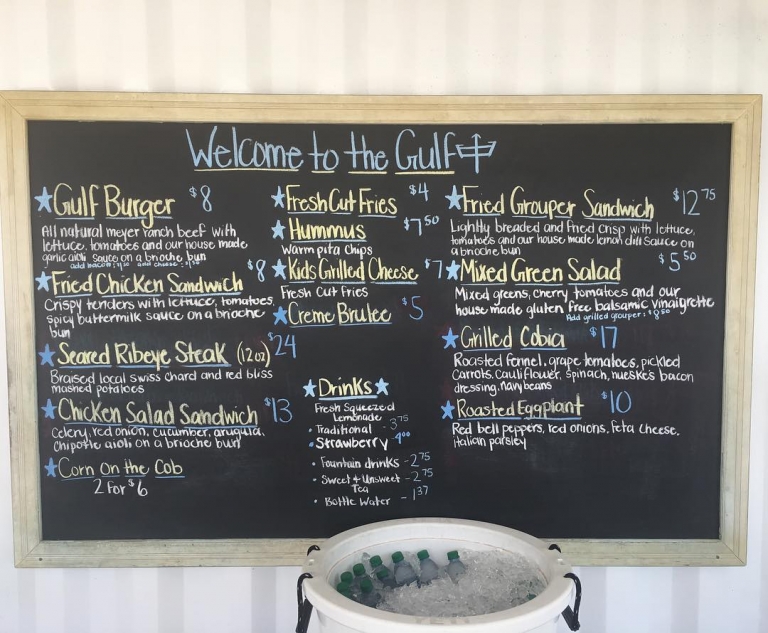 Welcome to the Gulf
Gulf Burger $8
All natural meyer ranch beef with
lettuce, tomatoes and our house made
garlic aioli sauce on a brioche bun
add bacon and cheese
Fried Chicken Sandwich $8
Crispy tenders with lettuce, tomatoes,
spicy buttermilk sauce on a brioche
bun
Seared Ribeye Steak (12 oz) $24
Braised local swiss chard and red bliss
mashed potatoes
Chicken Salad Sandwich $13
Celery, red onion, cucumber, arugula,
chipotle aioli on a brioche bun
Corn on the Cob
2 for $6
Fresh Cut Fries $4
Hummus $7.50
Warm pita chips
Kids Grilled Cheese $7
Fresh Cut Fries
Creme Brulee $5
Drinks
Fresh Squeezed
Lemonade
• Traditional - 3.75
• Strawberry - 4.00
• Fountain drinks - 2.75
• Sweet & Unsweet - 2.75
Tea
• Bottle Water - 1.37
Fried Grouper Sandwich $12.75
Lightly breaded and fried crisp with lettuce,
tomatoes and our house made lemon dill sauce on
a brioche bun
Mixed Green Salad $5.50
Mixed greens, cherry tomatoes and our
house made gluten free balsamic vinaigrette
Add grilled grouper: $8.50
Grilled Cobia $17
Roasted fennel, grape tomatoes, pickled
carrots, cauliflower, spinach, nueske's bacon
dressing, navy beans
Roasted Eggplant $10
Red bell peppers, red onions, feta cheese,
italian parsley